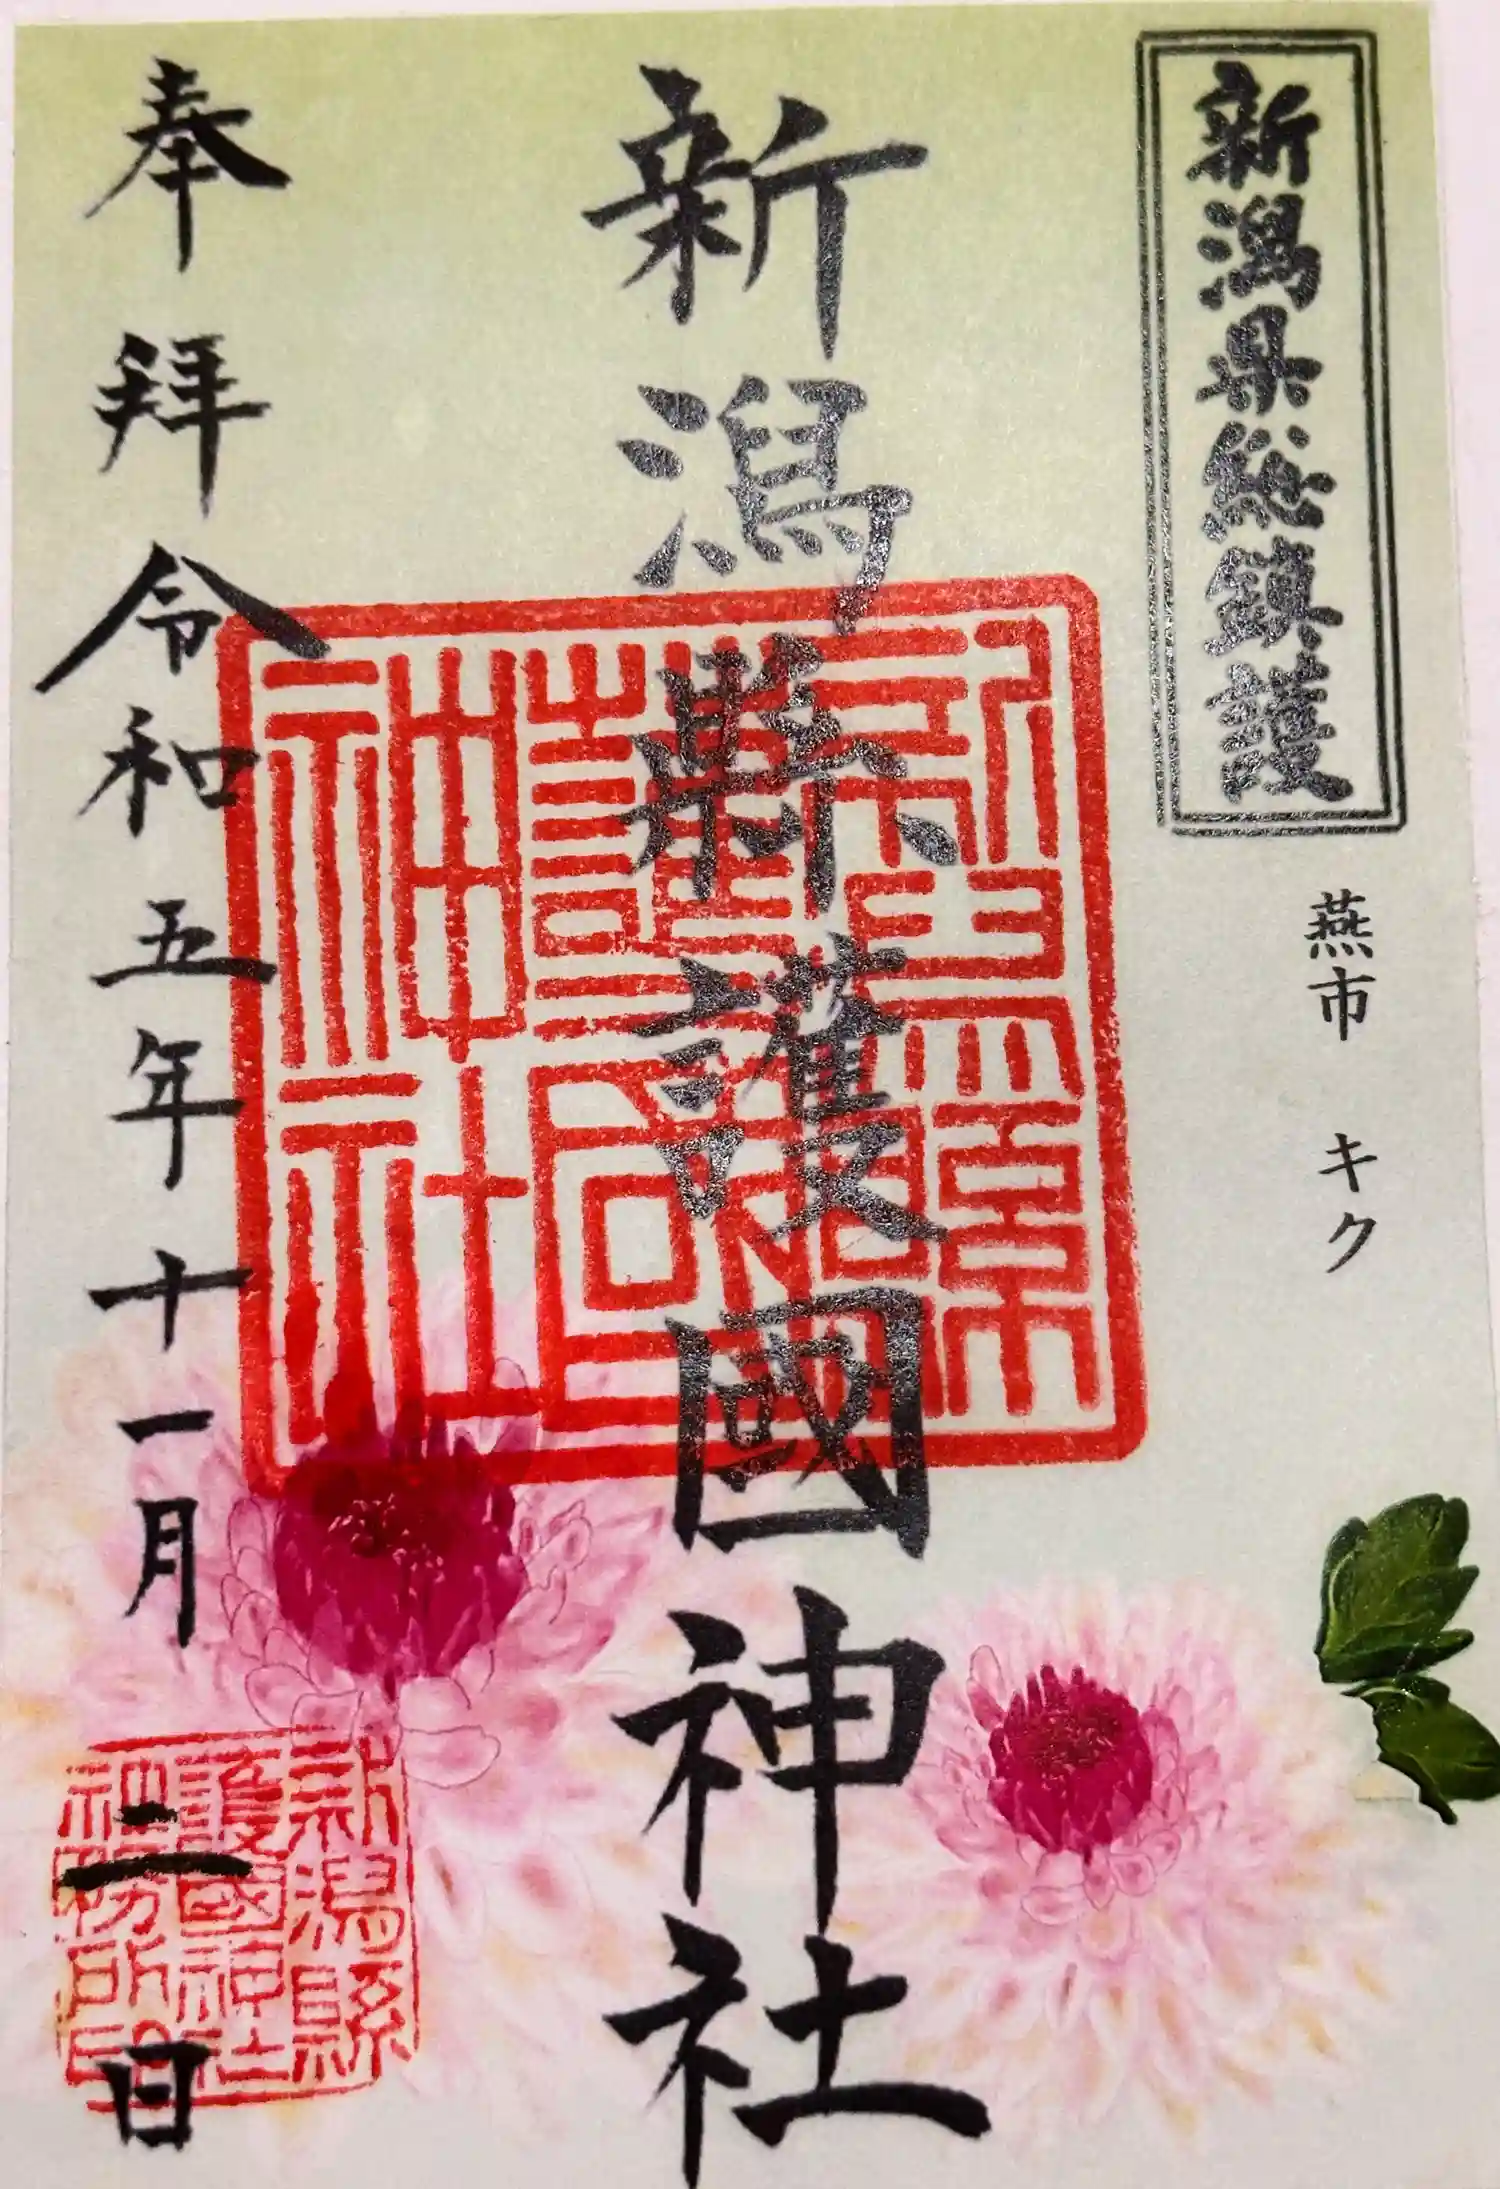 新潟県総鎮護
燕市 キク
新潟縣護國神社
奉拝令和五年十一月二日
新潟縣護國神社
新潟縣護國神社社務所印